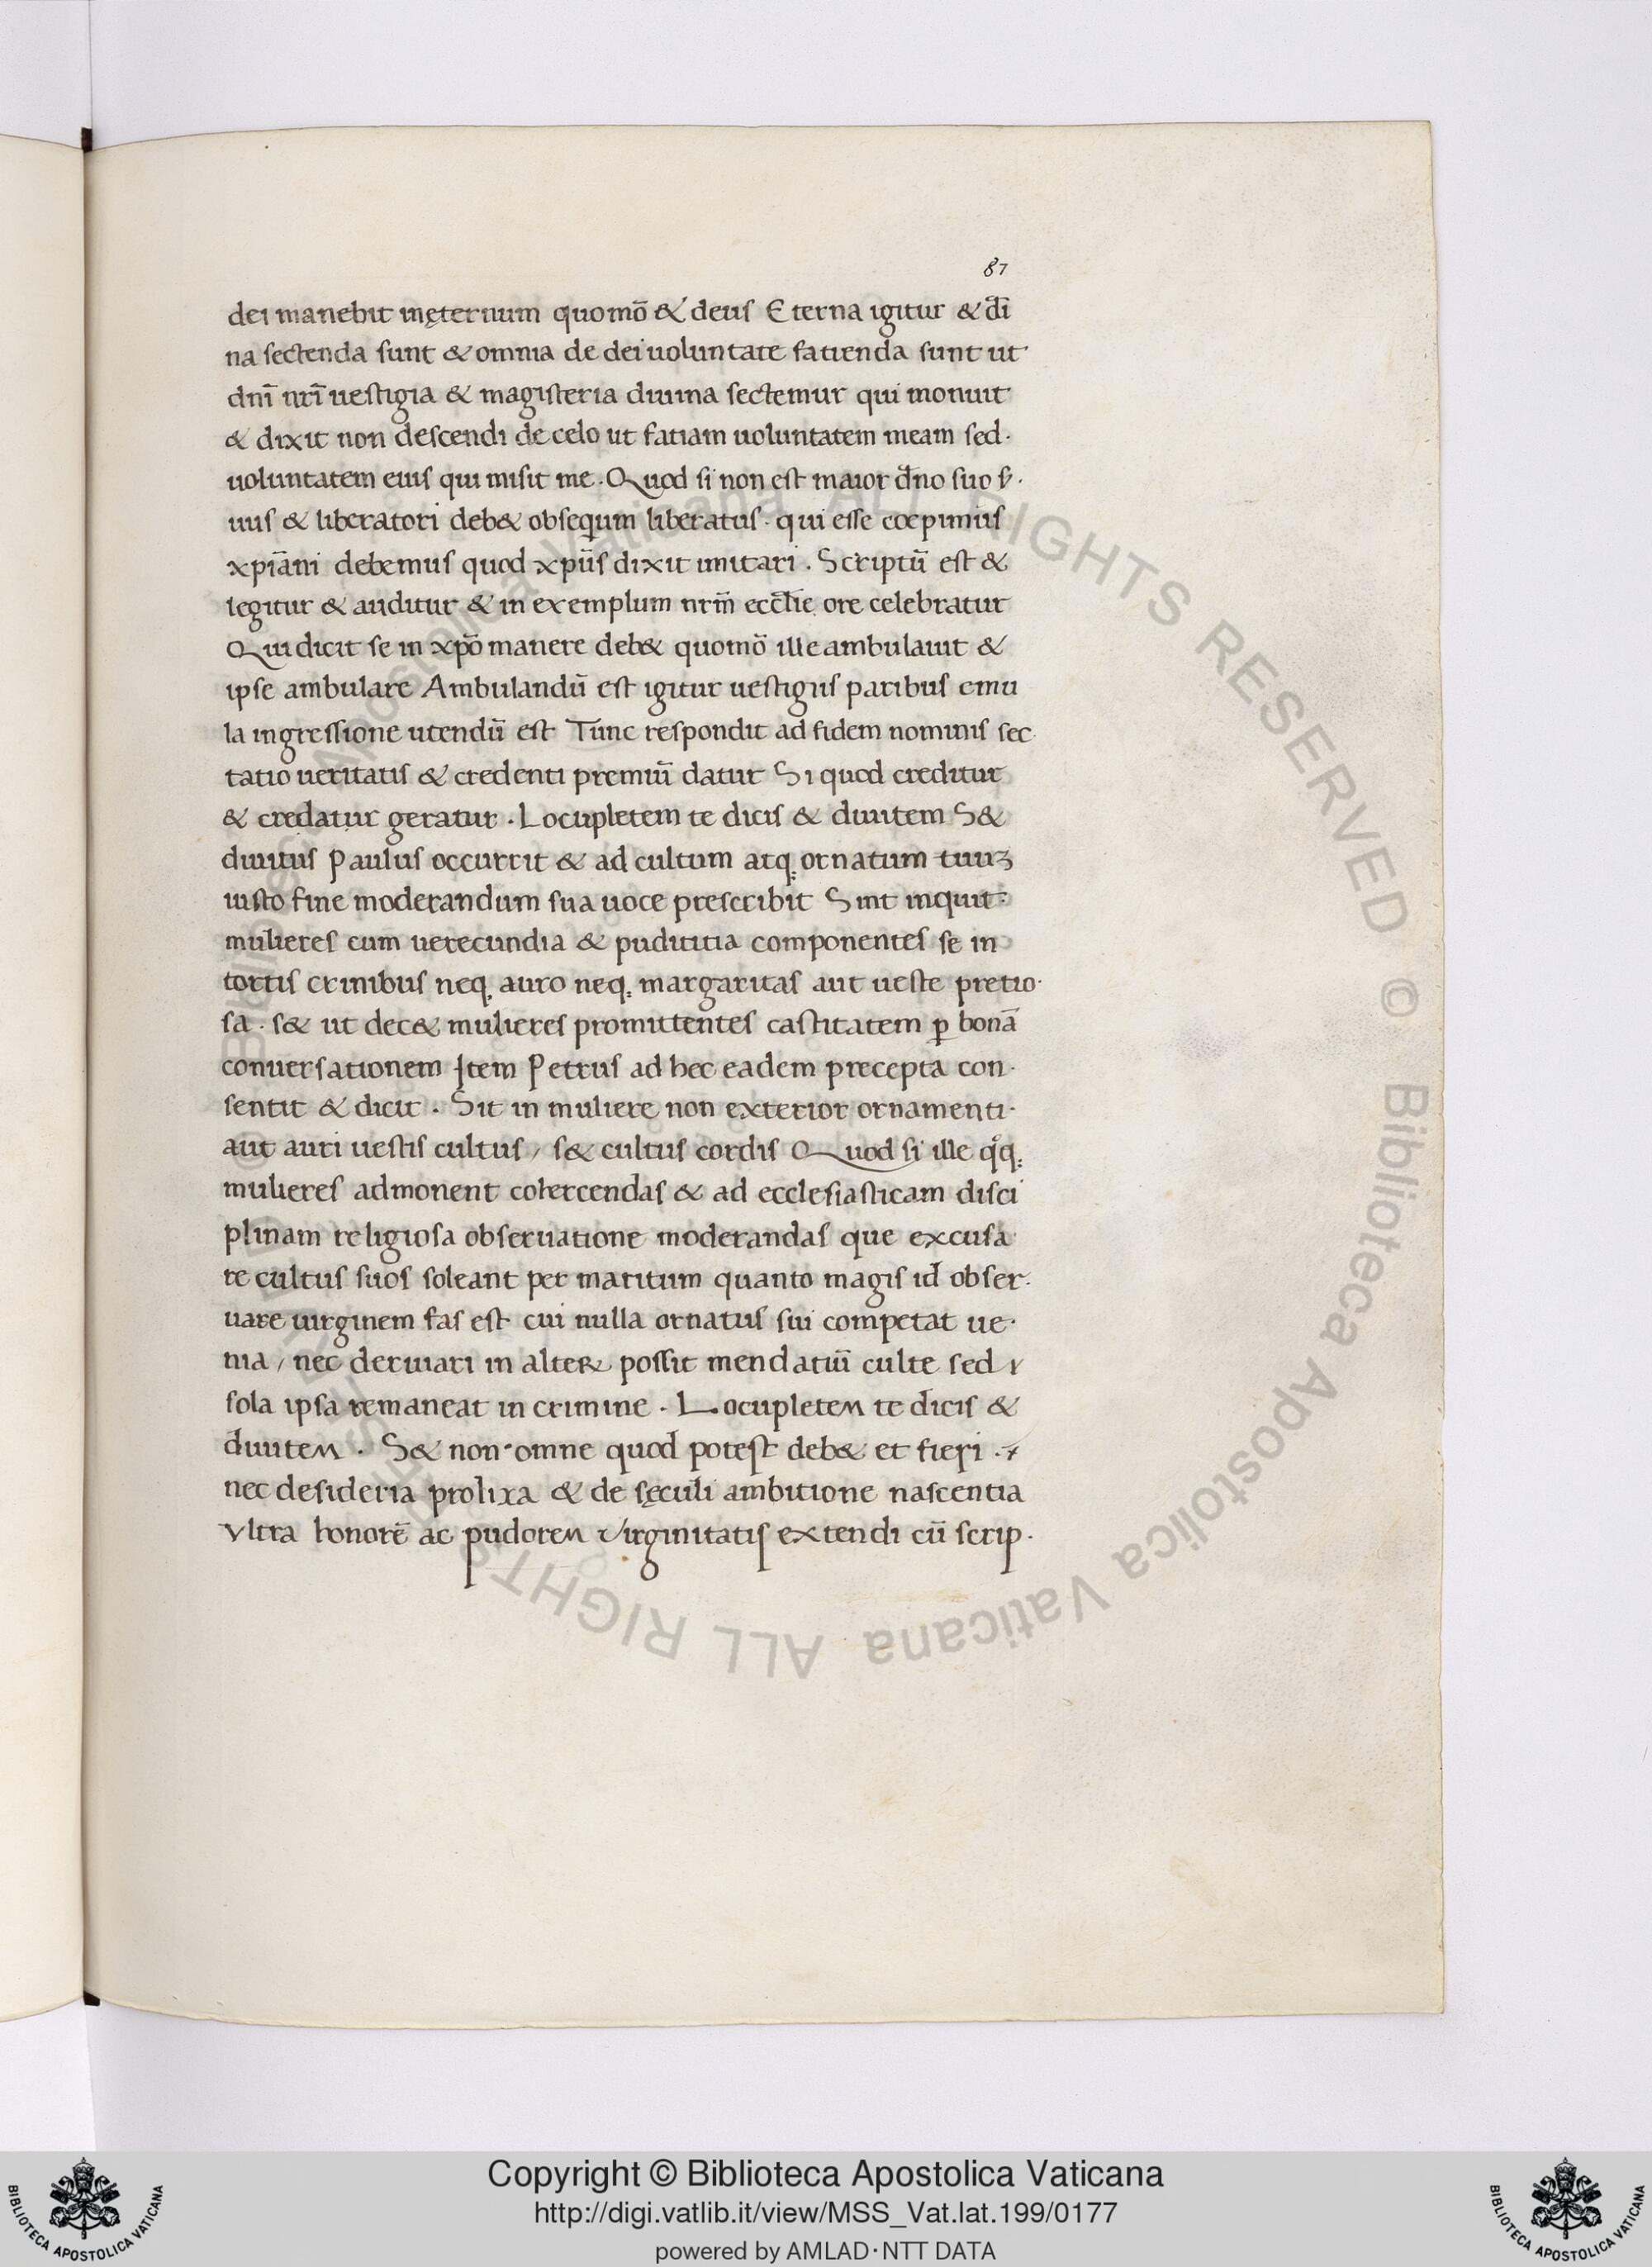 87
dei manebit inęternum quomō & deus Eterna igitur & di̅
na sectenda sunt & omnia de dei uoluntate fatienda sunt ut
dnī nrī uestigia & magisteria diuina sectemur qui monuit
& dixit non descendi de celo ut fatiam uoluntatem meam sed·
uoluntatem eius qui misit me . Quod si non est maior dño suo s̛·
uus & liberatori deb& obseqium liberatus · qui esse coepimus
xpīani debemus quod xpūs dixit imitari . Scriptū est &
legitur & auditur & in exemplum nrm̄ eccl̄ie ore celebratur
Qui dicit se in xpō manere deb& quomō ille ambulauit &
ipse ambulare Ambulandū est igitur uestigiis paribus emu
la ingressione utendū est Tunc respondit ad fidem nominis sec
tatio ueritatis & credenti premiū datur Si quod creditur
& credatur geratur . Locupletem te dicis & diuitem S&
diuitiis Paulus occurrit & ad cultum atq; ornatum tuuꝫ
iusto fine moderandum sua uoce prescribit Sint inquit·
mulieres cum uerecundia & pudititia componentes se in
tortis crinibus neq; auro neq; margaritas aut ueste pretio·
sa . s& ut dec& mulieres promittentes castitatem ꝑ bonā
conuersationem Item Petrus ad hec eadem precepta con·
sentit & dicit . Sit in muliere non exterior ornamenti·
aut auri uestis cultus / s& cultus cordis Quod si ille qͦq;
mulieres admonent cohercendas & ad ecclesiasticam disci
plinam religiosa obseruatione moderandas que excusa
re cultus suos soleant per maritum quanto magis id obser·
uare uirginem fas est cui nulla ornatus sui competat ue·
nia / nec deriuari in alterꝝ possit mendatiū culte sed
sola ipsa remaneat in crimine . Locupletem te dicis &
diuitem . S& non omne quod potest deb& et fieri .
nec desideria prolixa & de sęculi ambitione nascentia
Vltra honorē ac pudorem Virginitatis extendi cū scrip·
© Biblioteca Apostolica Vaticana ALL RIGHTS RESERVED © Biblioteca Apostolica Vaticana ALL RIGHTS RESERVED
Copyright © Biblioteca Apostolica Vaticana
http://digi.vatlib.it/view/MSS_Vat.lat.199/0177
powered by AMLAD·NTT DATA
BIBLIOTECA APOSTOLICA VATICANA
BIBLIOTECA APOSTOLICA VATICANA